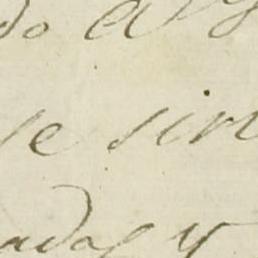 do a
se sin
adas y